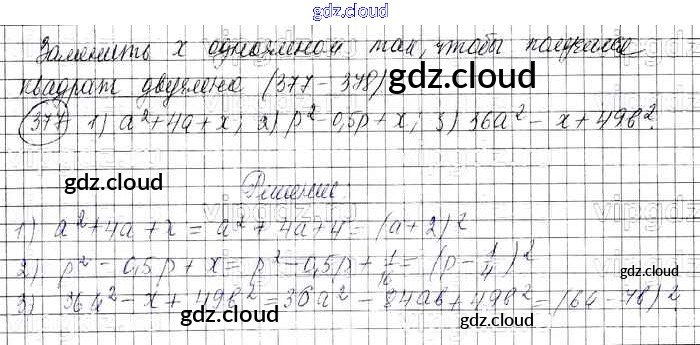 gdz.cloud
Заменить x одночленом так, чтобы получился
квадрат двучлена (377-378)
gdz.cloud
377 1) a²+4a+x; 2) p²-0,5p+x; 3) 36a²-x+49b².
gdz.cloud
gdz.cloud
Решение
1) a²+4a+x=a²+4a+4=(a+2)²
2) p²-0,5p+x=p²-0,5p+1/16=(p-1/4)²
gdz.cloud
3) 36a²-x+49b²=36a²-84ab+49b²=(6a-7b)²
gdz.cloud
gdz.cloud